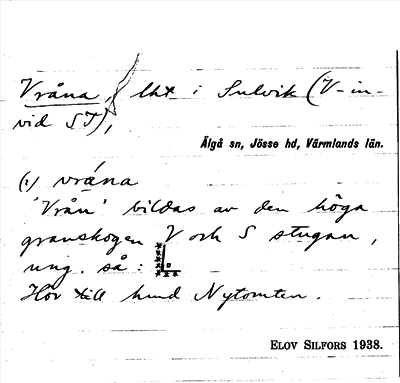 Vråna, lht i Sulvik (V-in-
vid ST),
Älgå sn, Jösse hd, Värmlands län.
(2) vråna
'Vrån' bildas av den höga
granskogen V och S stugan,
ung. så:
Hör till hmd Nytomten.
ELOV SILFORS 1938.